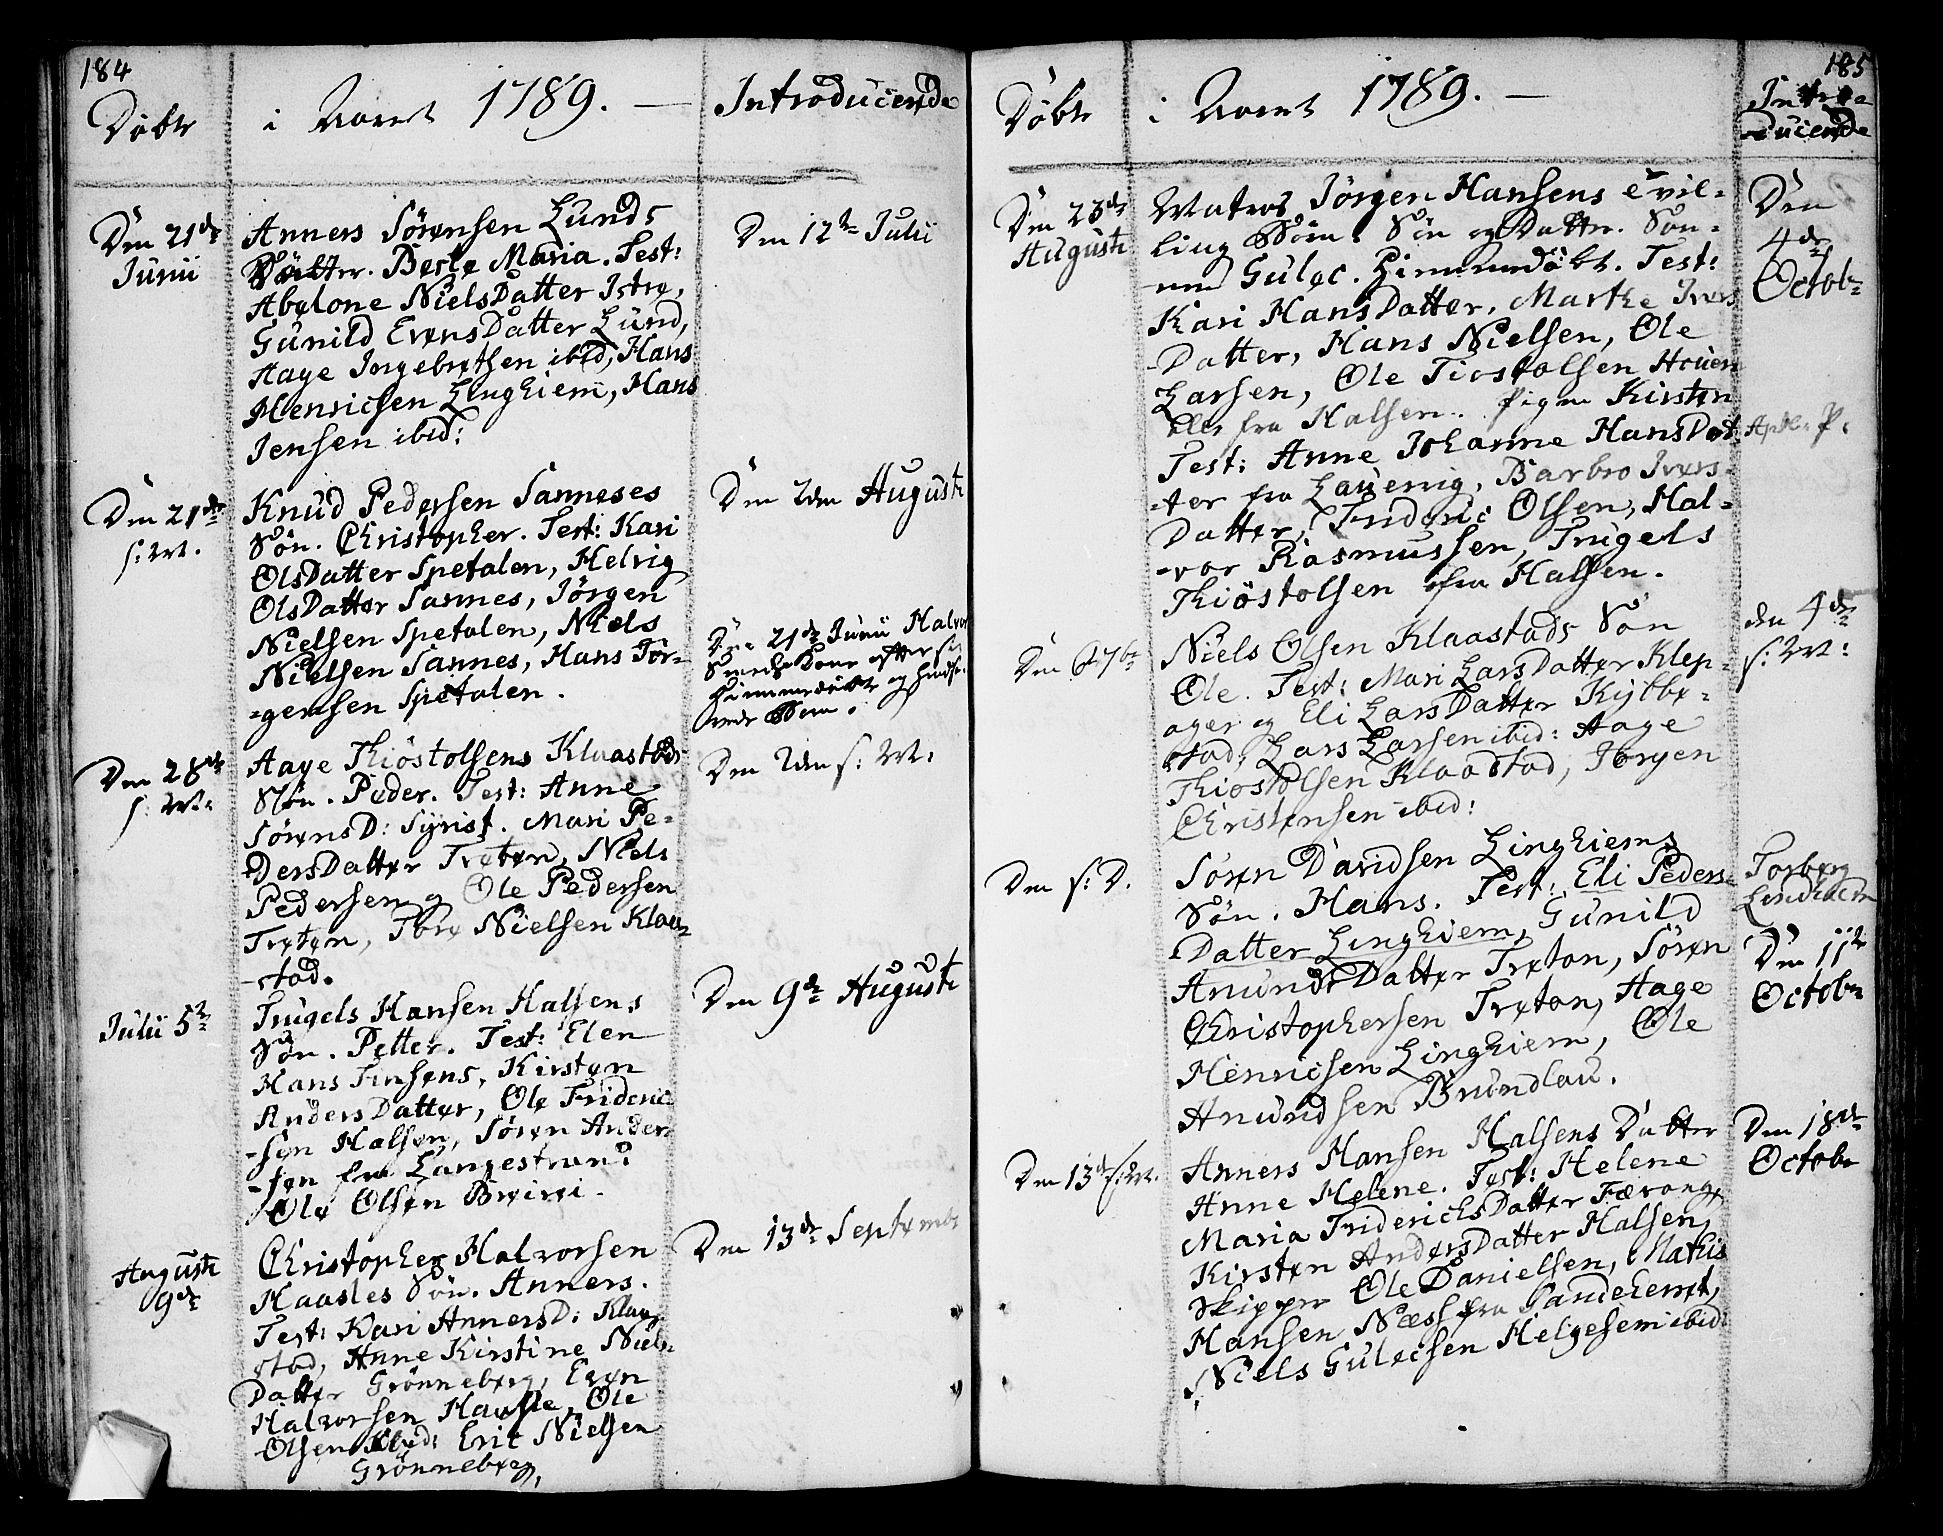 184
Døbte i Aaret 1789. — Introducerede
Den 21de
Junii
Anners Sørensen Lunds
Datter. Berte Maria. Test:
Abelone NielsDatter Istre,
Gunild EvensDatter Lund,
Aage Ingebretsen ibid, Hans
Henrichsen Linghiem, Hans
Jensen ibid:
Den 12te Julii
Den 21de
s: M.
Knud Pedersen Sanneses
Søn. Christopher. Test: Kari
OlsDatter Spetalen, Helvig
OlsDatter Sannes, Jörgen
Nielsen Spetalen, Niels
Nielsen Sannes, Hans Jör-
-gensen Spetalen.
Den 2den Augusti
Den 21de Junii Halvor
Kone efter sit
hiemmedøbte og
Barn.
Den 28de
s: M:
Aage Thiöstolsens Klaastads
Søn. Peder. Test: Anne
SørensD: Syrist. Mari Pe-
DersDatter Treten, Niels
Pedersen og Ole Pedersen
Treten, Tore Nielsen Klaa-
-stad.
Den 2den s: M:
Julii 5te
Trugels Hansen Halsens
Søn. Petter. Test: Elen
Hans Jensens, Kirsten
AndersDatter, Ole Frideric-
-sen Halsen, Søren Ander-
-sen fra Langestrand
Ole Olsen Breivi.
Den 9de Augusti
Augusti
9de
Christopher Halvorsen
Haasles Søn. Anners.
Test: Kari AnnersD: Klaa-
stad, Anne Kirstine Niels-
Datter Grönneberg, Even
Halvorsen Haasle, Ole
Olsen ibid: Eric Nielsen
Grönneberg.
Den 13de Septembr
185
Døbte i Aaret 1789. — Intro-
ducerede
Den 23de
Augusti
Matros Jörgen Hansens tvil-
ling Börn. Søn og Datter. Søn-
nen Gulec. Hiemmedöbt. Test:
Kari HansDatter, Marthe Ivers
-Datter, Hans Nielsen, Ole
Larsen, Ole Tiostolsen
alle fra Halsen. Pigen Kirsten
Test: Anne Johanne HansDat-
-ter fra Laurvig, Barbro Ivers-
Datter, Frideric Olsen, Hal-
-vor Rasmussen, Trugels
Thiöstolsen fra Halsen.
Den
4de
Octobr
Den 6 7br
Niels Olsen Klaastads Søn
Ole. Test: Mari LarsDatter Klep-
ager og Eli LarsDatter Kiebbe-
stad, Lars Larsen ibid: Aage
Thiostolsen Klaastad, Jörgen
Christensen ibid:
den 4de
s: M:
Den s: D.
Søren Davidsen Linghiems
Søn. Hans. Test: Eli Peders-
Datter Linghiem, Gunild
AmundsDatter Treton, Søren
Christophersen Treton, Aage
Henricsen Linghiem, Ole
Amundsen Brunlau.
Torberg
Den 11te
Octobr
Den 13de s: M.
Anners Hansen Halsens Datter
Anne Helene. Test: Helene
Maria FriderichsDatter
Kirsten AndersDatter Halsen,
Skipper Ole Danielsen, Mathis
Hansen Næss fra Sandeherret,
Niels Gulecsen Helgesem ibid:
Den 18de
Octobr